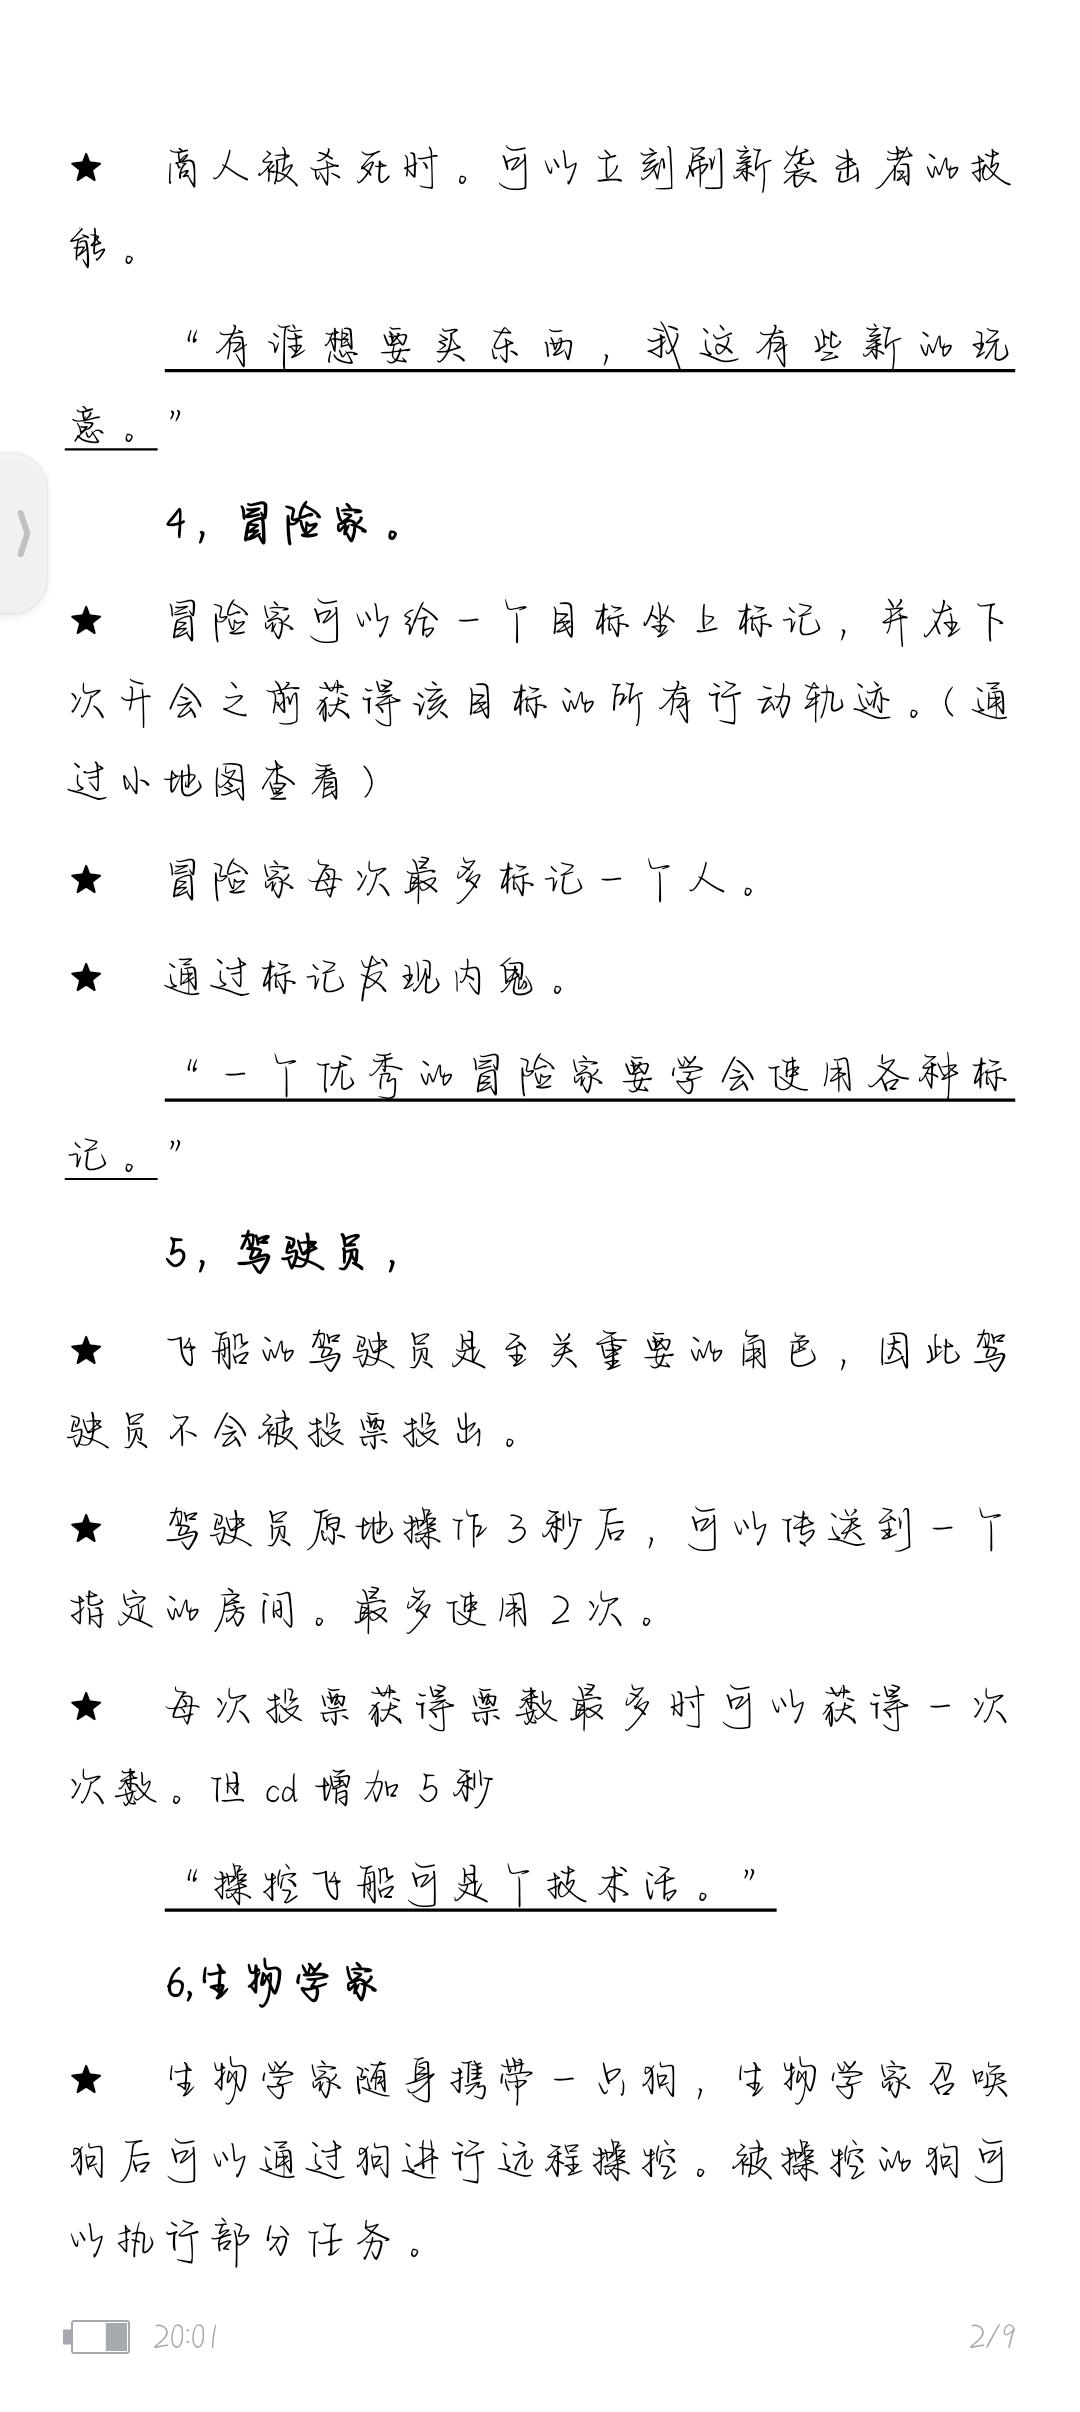 ★ 商人被杀死时。可以立刻刷新袭击者的技
能。
“有谁想要买东西，我这有些新的玩
意。”
4，冒险家。
★ 冒险家可以给一个目标坐上标记，并在下
次开会之前获得该目标的所有行动轨迹。（通
过小地图查看）
★ 冒险家每次最多标记一个人。
★ 通过标记发现内鬼。
“一个优秀的冒险家要学会使用各种标
记。”
5，驾驶员，
★ 飞船的驾驶员是至关重要的角色，因此驾
驶员不会被投票投出。
★ 驾驶员原地操作3秒后，可以传送到一个
指定的房间。最多使用2次。
★ 每次投票获得票数最多时可以获得一次
次数。但cd增加5秒
“操控飞船可是个技术活。”
6,生物学家
★ 生物学家随身携带一只狗，生物学家召唤
狗后可以通过狗进行远程操控。被操控的狗可
以执行部分任务。
20:01 2/9